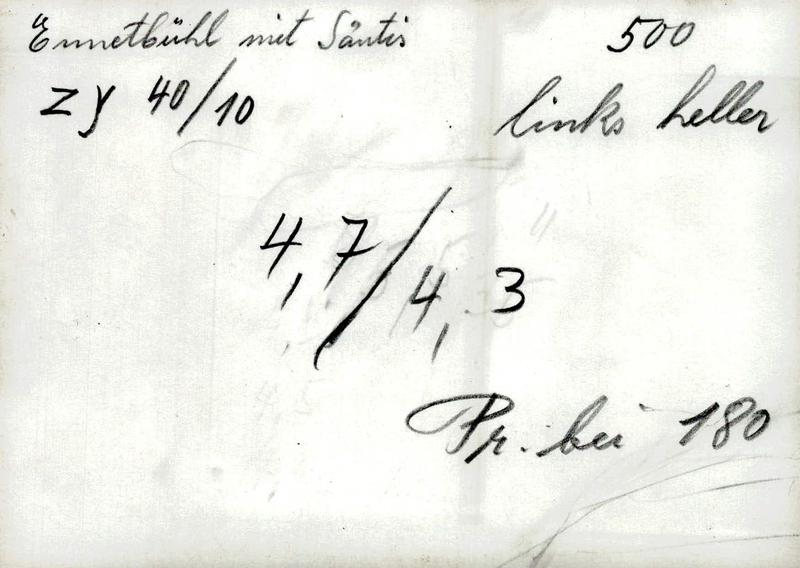 Ennetbühl mit Säntis
500
zy 40/10
links heller
4,7/4,3
Pr. bei 180